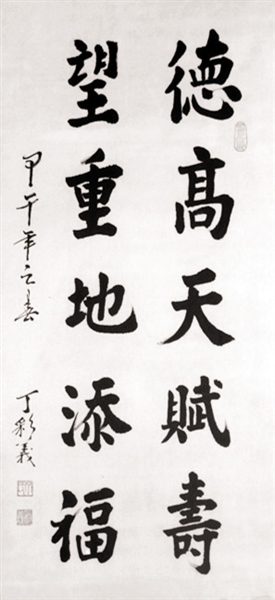 德高天賦壽
望重地添福
甲午年之春
丁彩義